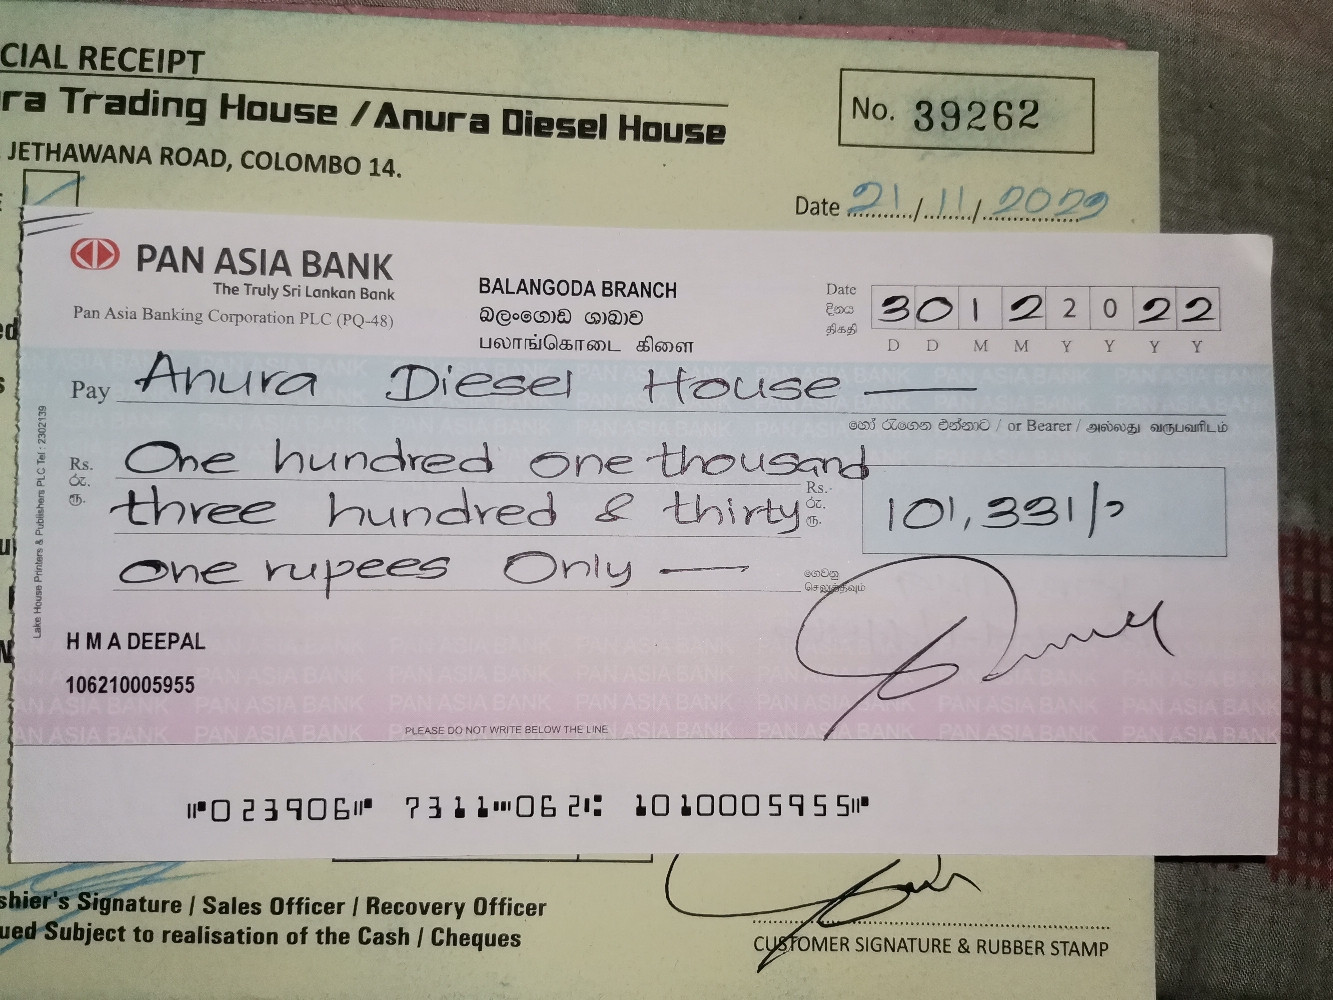 CIAL RECEIPT
ra Trading House / Anura Diesel House
JETHAWANA ROAD, COLOMBO 14.
No. 39262
Date 21/11/2022
PAN ASIA BANK
The Truly Sri Lankan Bank
Pan Asia Banking Corporation PLC (PQ-48)
BALANGODA BRANCH
බලංගොඩ ශාඛාව
பலாங்கொடை கிளை
Date
දිනය
திகதி
30122022
D D M M Y Y Y Y
Pay Anura Diesel House
හෝ රැගෙන එන්නාට / or Bearer / அல்லது வருபவரிடம்
Rs.
රු.
ரூ.
One hundred one thousand
three hundred & thirty
one rupees Only
Rs.
රු.
ரூ.
101,331/-
ගෙවනු
செலுத்தவும்
Lake House Printers & Publishers PLC Tel : 2302139
H M A DEEPAL
106210005955
PLEASE DO NOT WRITE BELOW THE LINE
⑈023906⑈ 7311⑉062⑆ 1010005955⑈
shier's Signature / Sales Officer / Recovery Officer
ued Subject to realisation of the Cash / Cheques
CUSTOMER SIGNATURE & RUBBER STAMP